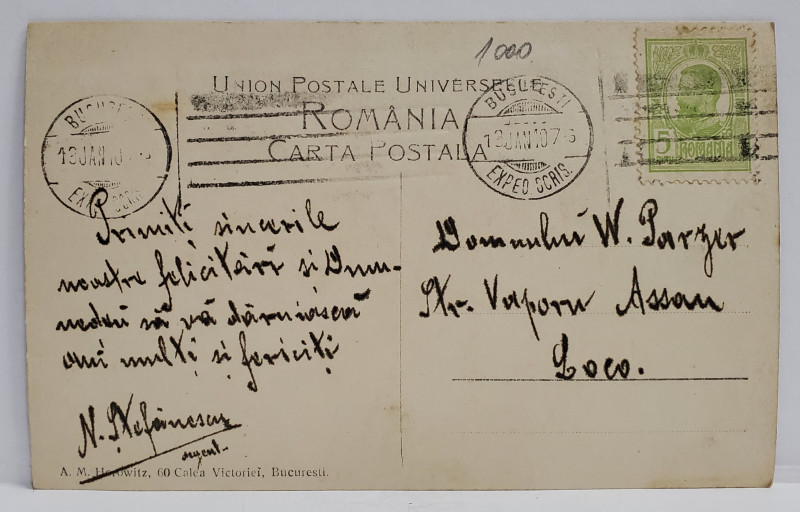 1000
UNION POSTALE UNIVERSELLE
ROMÂNIA
CARTA POSTALA
BUCUREST
13 JAN 10
EXPED SCRIS.
BUCUREȘTI
13 JAN 10 7-
EXPED SCRIS.
5
ROMANIA
Primiți sincerile
noastre felicitări si Dum-
nedeu să vă dăruiască
ani mulți și fericiți
N. Ștefănescu
Domnului W. Parzer
Str. Vaporu Assan
Loco.
A. M. Horowitz, 60 Calea Victoriei, Bucuresti.